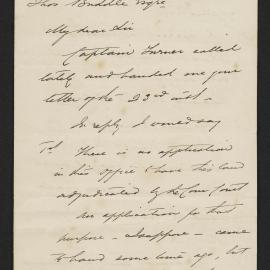 Thos Buddle Esqre
My dear Sir
Captain Turner called
lately and handed me your
letter of the 23rd inst.
In reply I would say
1st There is no application
in this office to have his land
adjudicated by the Law Court
An application for that
purpose - - came
to hand some time ago, but